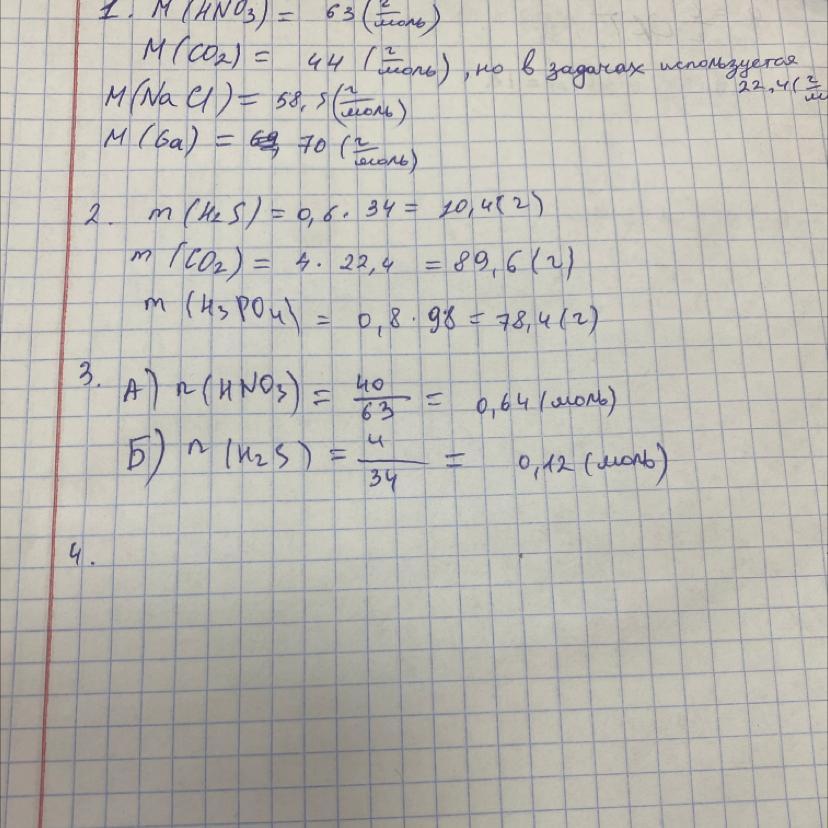 1. M(HNO3) = 63 (г/моль)
M(CO2) = 44 (г/моль), но в задачах используется
22,4 (г/м
M(NaCl) = 58,5 (г/моль)
M(Ga) = 70 (г/моль)
2. m(H2S) = 0,6 · 34 = 20,4 (г)
m(CO2) = 4 · 22,4 = 89,6 (г)
m(H3PO4) = 0,8 · 98 = 78,4 (г)
3. А) n(HNO3) = 40/63 = 0,64 (моль)
Б) n(H2S) = 4/34 = 0,12 (моль)
4.